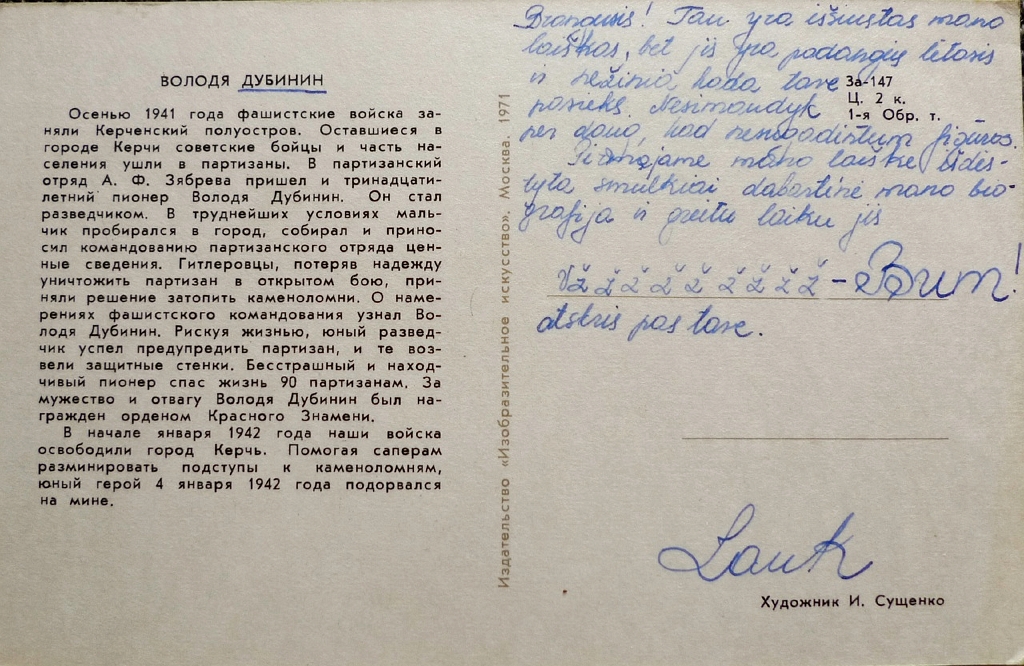 ВОЛОДЯ ДУБИНИН
Осенью 1941 года фашистские войска за-
няли Керченский полуостров. Оставшиеся в
городе Керчи советские бойцы и часть на-
селения ушли в партизаны. В партизанский
отряд А. Ф. Зябрева пришел и тринадцати-
летний пионер Володя Дубинин. Он стал
разведчиком. В труднейших условиях маль-
чик пробирался в город, собирал и прино-
сил командованию партизанского отряда цен-
ные сведения. Гитлеровцы, потеряв надежду
уничтожить партизан в открытом бою, при-
няли решение затопить каменоломни. О наме-
рениях фашистского командования узнал Во-
лодя Дубинин. Рискуя жизнью, юный развед-
чик успел предупредить партизан, и те воз-
вели защитные стенки. Бесстрашный и наход-
чивый пионер спас жизнь 90 партизанам. За
мужество и отвагу Володя Дубинин был на-
гражден орденом Красного Знамени.
В начале января 1942 года наши войска
освободили город Керчь. Помогая саперам
разминировать подступы к каменоломням,
юный герой 4 января 1942 года подорвался
на мине.
Издательство «Изобразительное искусство». Москва. 1971
Brangusis! Tau yra išsiustas mano
laiškas, bet jis yra padangių lėtasis
ir nežinia kada tave
pasieks. Nesimaudyk
per daug, kad nesugadintum figūros.
mano laiške išdės-
tyta smulkiai dabartinė mano bio-
grafija ir greitu laiku jis
Vž ž ž ž ž ž ž ž ž - Bum!
atskris pas tave.
Lauk
За-147
Ц. 2 к.
1-я Обр. т.
Художник И. Сущенко